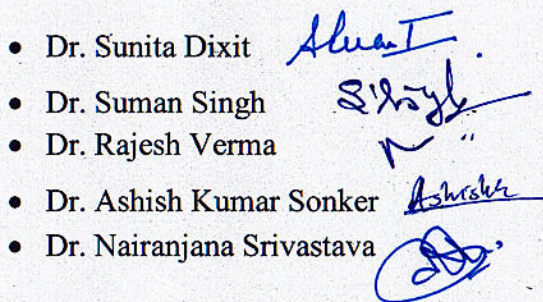 • Dr. Sunita Dixit
• Dr. Suman Singh
• Dr. Rajesh Verma
• Dr. Ashish Kumar Sonker Ashishk
• Dr. Nairanjana Srivastava